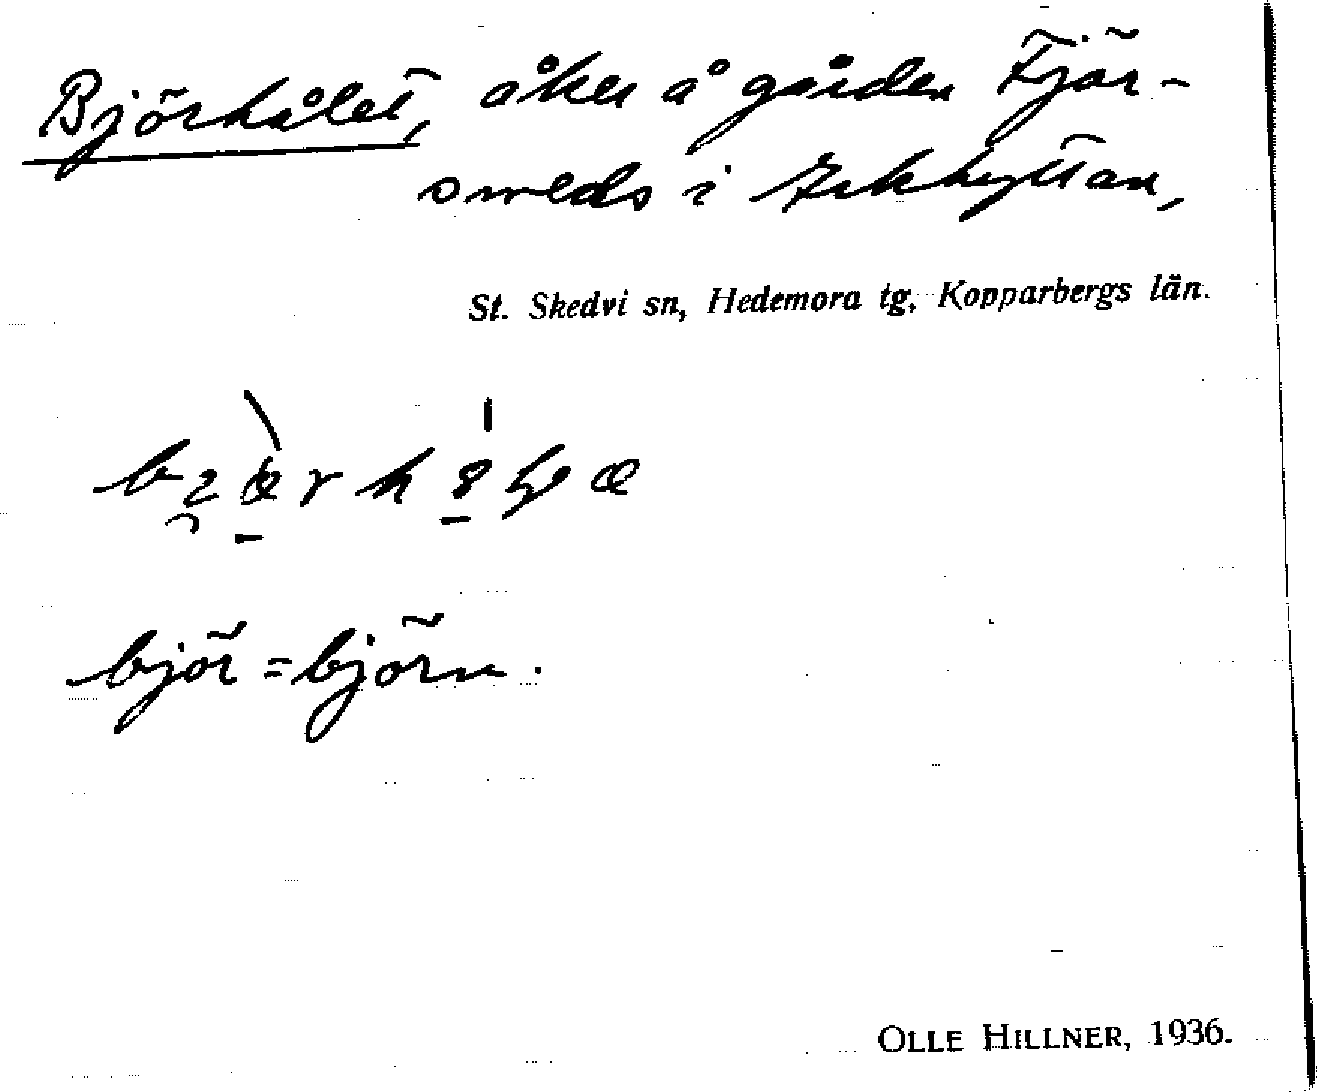 Björhålet, åker å gården Fjär-
smeds i
St. Skedvi sn, Hedemora tg, Kopparbergs län.
björ = björn.
OLLE HILLNER, 1936.